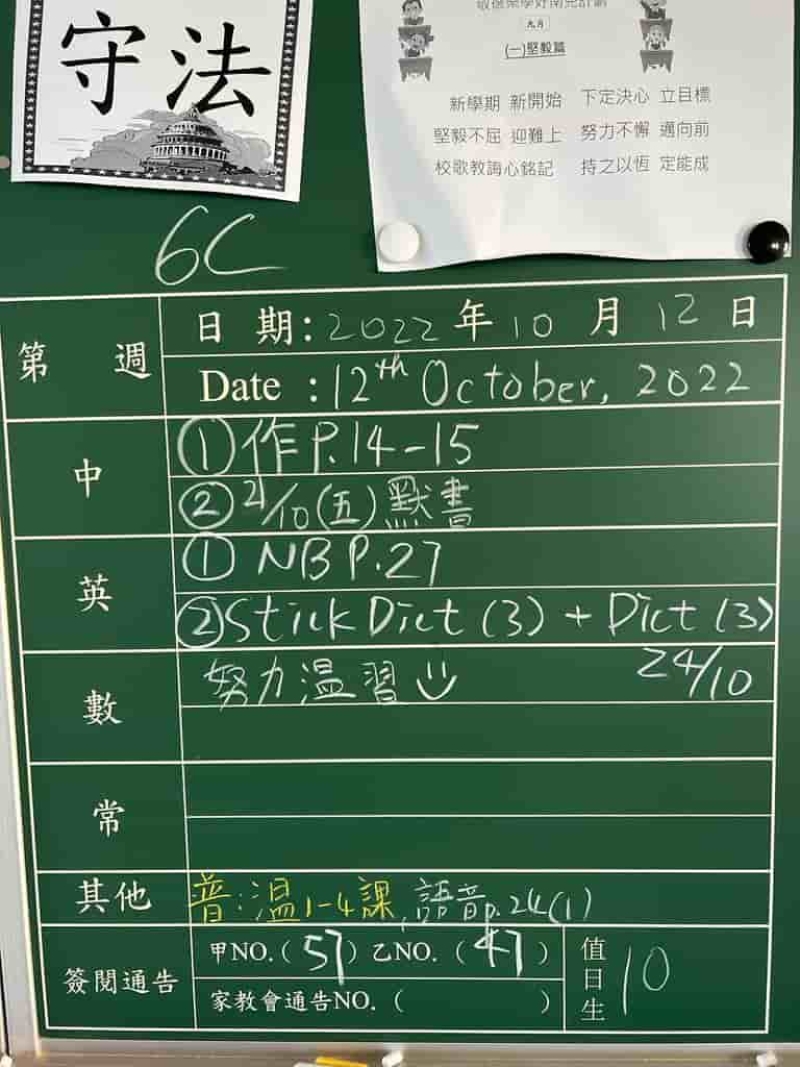 守法
九月
(一)堅毅篇
新學期 新開始 下定決心 立目標
堅毅不屈 迎難上 努力不懈 邁向前
校歌教誨心銘記 持之以恆 定能成
6C
第 週
日 期: 2022 年 10 月 12 日
Date : 12th October, 2022
中
① 作 P.14-15
② 21/10 (五) 默書
英
① NB P.27
② Stick Dict (3) + Dict (3)
24/10
數
努力温習
常
其他
普:温1-4課, 語音p.24(1)
簽閱通告
甲NO.( 57 ) 乙NO. ( 47 )
家教會通告NO. ( )
值日生 10